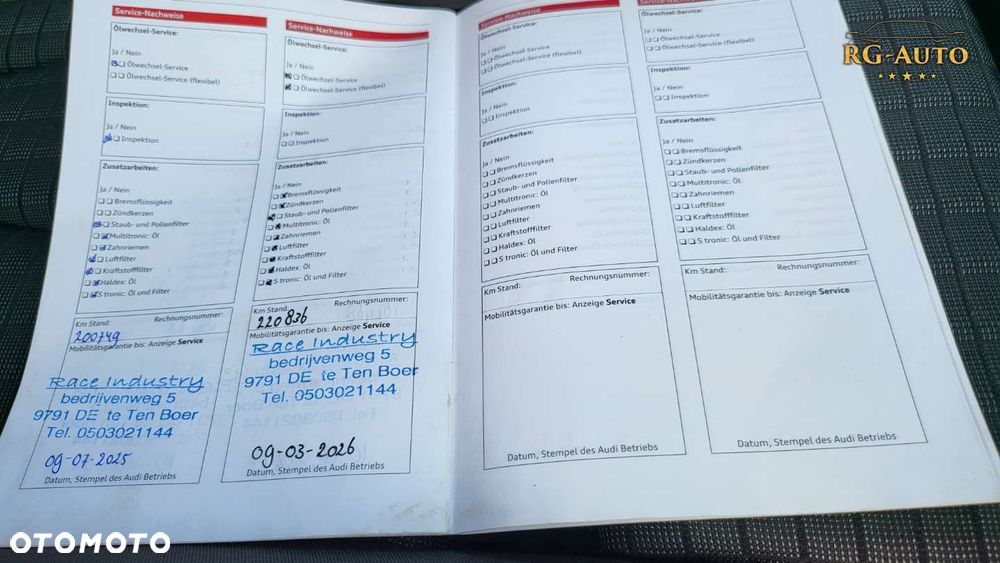 Service-Nachweise
Ölwechsel-Service:
Ja / Nein
Ölwechsel-Service
Ölwechsel-Service (flexibel)
Inspektion:
Ja / Nein
Inspektion
Zusatzarbeiten:
Ja / Nein
Bremsflüssigkeit
Zündkerzen
Staub- und Pollenfilter
Multitronic: Öl
Zahnriemen
Luftfilter
Kraftstofffilter
Haldex: Öl
S tronic: Öl und Filter
Km Stand: Rechnungsnummer:
200749
Mobilitätsgarantie bis: Anzeige Service
Race Industry
bedrijvenweg 5
9791 DE te Ten Boer
Tel. 0503021144
09-07-2025
Datum, Stempel des Audi Betriebs
Service-Nachweise
Ölwechsel-Service:
Ja / Nein
Ölwechsel-Service
Ölwechsel-Service (flexibel)
Inspektion:
Ja / Nein
Inspektion
Zusatzarbeiten:
Ja / Nein
Bremsflüssigkeit
Zündkerzen
Staub- und Pollenfilter
Multitronic: Öl
Zahnriemen
Luftfilter
Kraftstofffilter
Haldex: Öl
S tronic: Öl und Filter
Km Stand: Rechnungsnummer:
220836
Mobilitätsgarantie bis: Anzeige Service
Race Industry
bedrijvenweg 5
9791 DE te Ten Boer
Tel. 0503021144
09-03-2026
Datum, Stempel des Audi Betriebs
Service-Nachweise
Ölwechsel-Service:
Ja / Nein
Ölwechsel-Service
Ölwechsel-Service (flexibel)
Inspektion:
Ja / Nein
Inspektion
Zusatzarbeiten:
Ja / Nein
Bremsflüssigkeit
Zündkerzen
Staub- und Pollenfilter
Multitronic: Öl
Zahnriemen
Luftfilter
Kraftstofffilter
Haldex: Öl
S tronic: Öl und Filter
Km Stand: Rechnungsnummer:
Mobilitätsgarantie bis: Anzeige Service
Datum, Stempel des Audi Betriebs
Ölwechsel-Service:
Ja / Nein
Ölwechsel-Service
Ölwechsel-Service (flexibel)
Inspektion:
Ja / Nein
Inspektion
Zusatzarbeiten:
Ja / Nein
Bremsflüssigkeit
Zündkerzen
Staub- und Pollenfilter
Multitronic: Öl
Zahnriemen
Luftfilter
Kraftstofffilter
Haldex: Öl
S tronic: Öl und Filter
Km Stand: Rechnungsnummer:
Mobilitätsgarantie bis: Anzeige Service
Datum, Stempel des Audi Betriebs
RG-AUTO
OTOMOTO